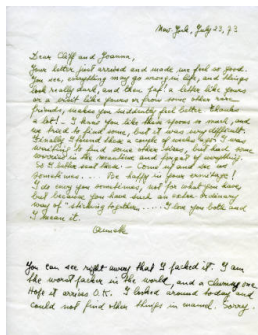 New York, July 23, 73
Dear Cliff and Joanna,
Your letter just arrived and made me feel so good.
You see, everything may go wrong in life, and things
look really dark, and then, zap! a letter like yours
or a visit like yours or from some other rare
friends, makes you suddenly feel better. Thanks
a lot! - I have one like that spoons so much, and
we tried to find some, but it was very difficult.
Finally I found these a couple of weeks ago. I was
waiting to find some other, but had some
worries in the meantime and forgot of everything.
So I better send these. - Come up and see us
sometimes.... Be happy in your
I do envy you sometimes, not for what you have,
but because you have such an extra ordinary
way of working together.... I love you both and
I mean it.
You can see right away that I packed it. I am
the worst packer in the world, and a clumsy one
Hope it arrives O.K. I looked around today and
could not find other things in enamel. Sorry.